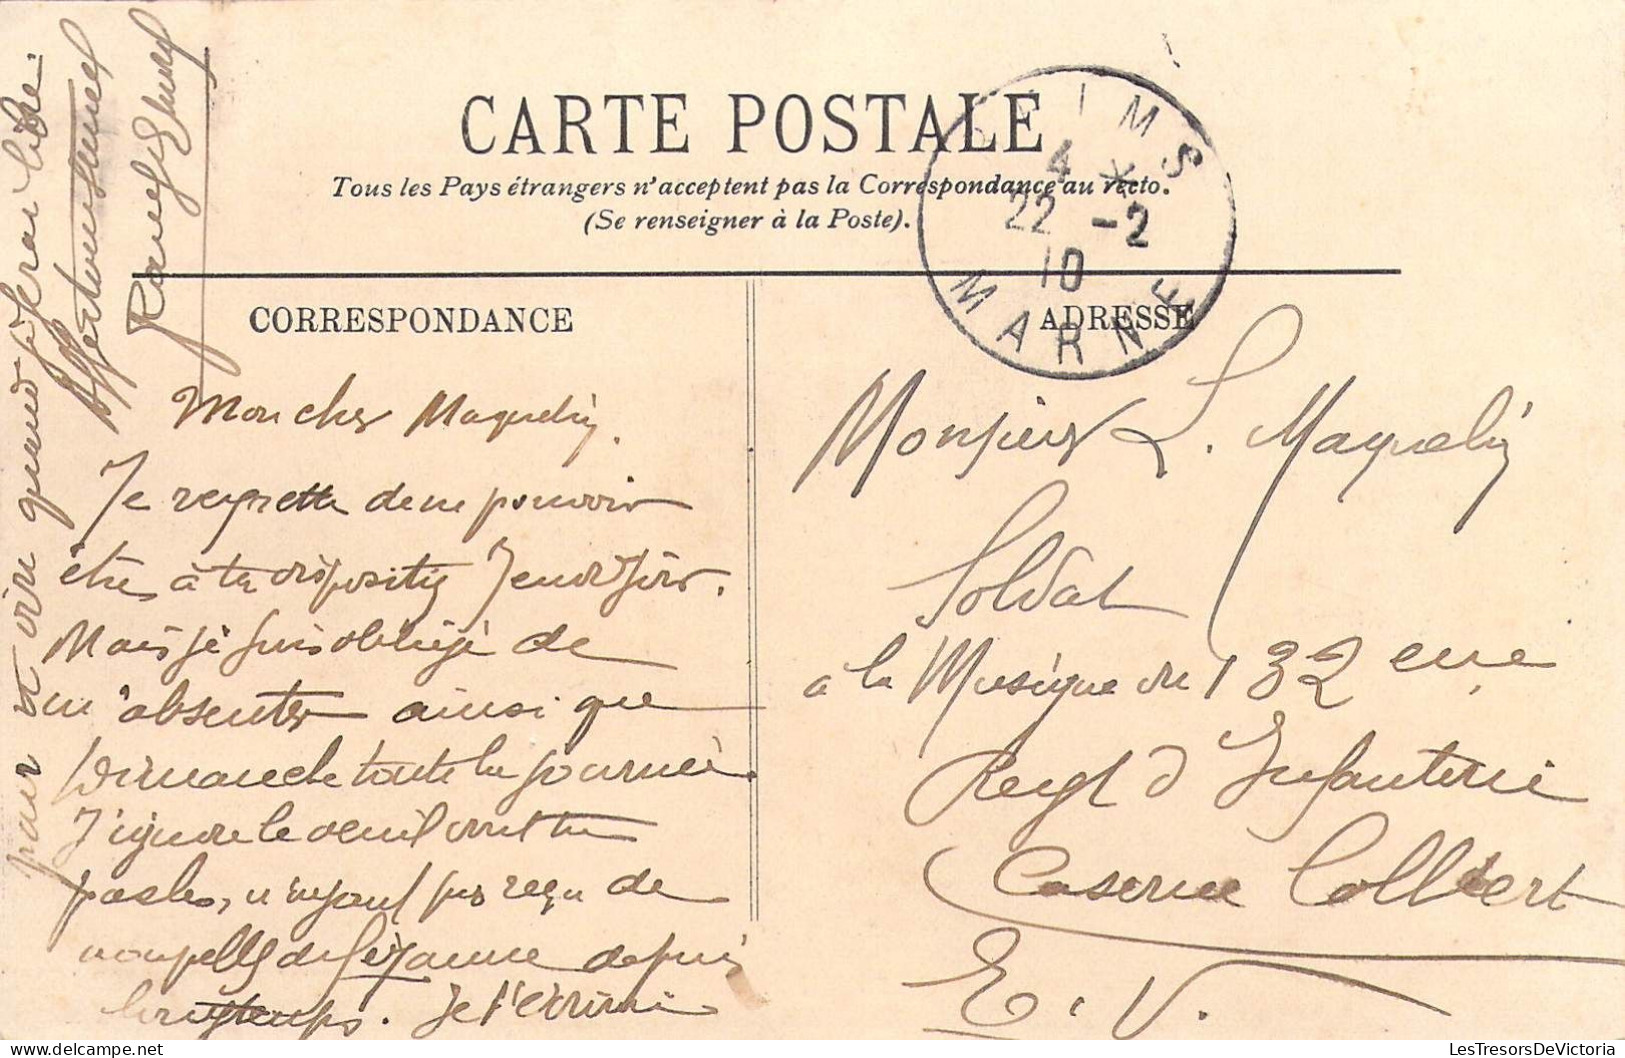 CARTE POSTALE
Tous les Pays étrangers n'acceptent pas la Correspondance au recto.
(Se renseigner à la Poste).
REIMS
4 *
22 -2
10
MARNE
CORRESPONDANCE
ADRESSE
Mon cher Maquelin,
Je regrette de ne pouvoir
être à ta disposition Jeudi soir.
Mais je suis obligé de
m'absenter ainsi que
Dimanche toute la journée.
J'ignore le deuil dont tu
parles, n'ayant pas reçu de
nouvelles de Sézanne depuis
longtemps. Je t'écrirai
pour te dire quand je serai libre.
Affectueusement
Monsieur L. Maquelin
Soldat
à la Musique du 132 eme
Regt d'Infanterie
Caserne Colbert
E. V.
LesTresorsDeVictoria